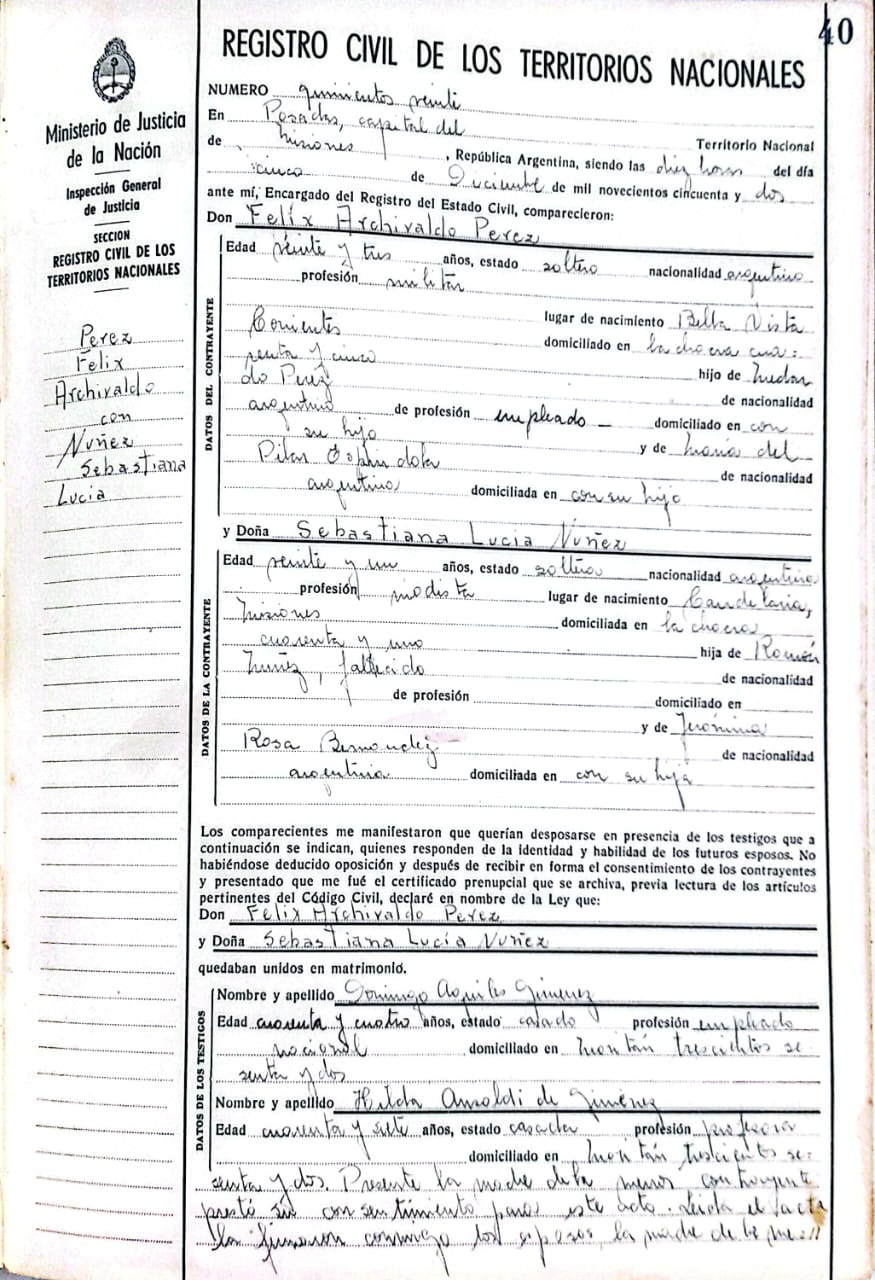 40
REGISTRO CIVIL DE LOS TERRITORIOS NACIONALES
Ministerio de Justicia
de la Nación
Inspección General
de Justicia
SECCION
REGISTRO CIVIL DE LOS
TERRITORIOS NACIONALES
Perez
Felix
Archivaldo
con
Nuñez
Sebastiana
Lucia
NUMERO quinientos veinte
En Posadas, capital del
Territorio Nacional
de Misiones, República Argentina, siendo las diez horas del día
cinco de Diciembre de mil novecientos cincuenta y dos
ante mí, Encargado del Registro del Estado Civil, comparecieron:
Don Felix Archivaldo Perez
DATOS DEL CONTRAYENTE
Edad veinte y tres años, estado soltero nacionalidad argentino
profesión militar
lugar de nacimiento Bella Vista
Corrientes domiciliado en la chacra cua:
renta y cinco hijo de
do Perez de nacionalidad
argentino de profesión empleado — domiciliado en con
su hijo y de María del
Pilar de nacionalidad
argentina domiciliada en con su hijo
y Doña Sebastiana Lucia Nuñez
DATOS DE LA CONTRAYENTE
Edad veinte y un años, estado soltera nacionalidad argentina
profesión modista lugar de nacimiento Candelaria,
Misiones domiciliada en la chacra
cuarenta y uno hija de Ramón
Nuñez, fallecido de nacionalidad
de profesión domiciliado en
y de Jerónima
Rosa de nacionalidad
argentina domiciliada en con su hija
Los comparecientes me manifestaron que querían desposarse en presencia de los testigos que a
continuación se indican, quienes responden de la identidad y habilidad de los futuros esposos. No
habiéndose deducido oposición y después de recibir en forma el consentimiento de los contrayentes
y presentado que me fué el certificado prenupcial que se archiva, previa lectura de los artículos
pertinentes del Código Civil, declaré en nombre de la Ley que:
Don Felix Archivaldo Perez
y Doña Sebastiana Lucía Nuñez
quedaban unidos en matrimonio.
DATOS DE LOS TESTIGOS
Nombre y apellido Domingo Aquiles Gimenez
Edad cuarenta y cuatro años, estado casado profesión empleado
nacional domiciliado en trescientos se
senta y dos
Nombre y apellido Hilda Ansaldi de Giménez
Edad cuarenta y siete años, estado casada profesión profesora
domiciliado en trescientos se:
senta y dos. Presente la madre de la menor contrayente
prestó su consentimiento para este acto. Leida el acta
la firmaron conmigo los esposos, la madre de la me: